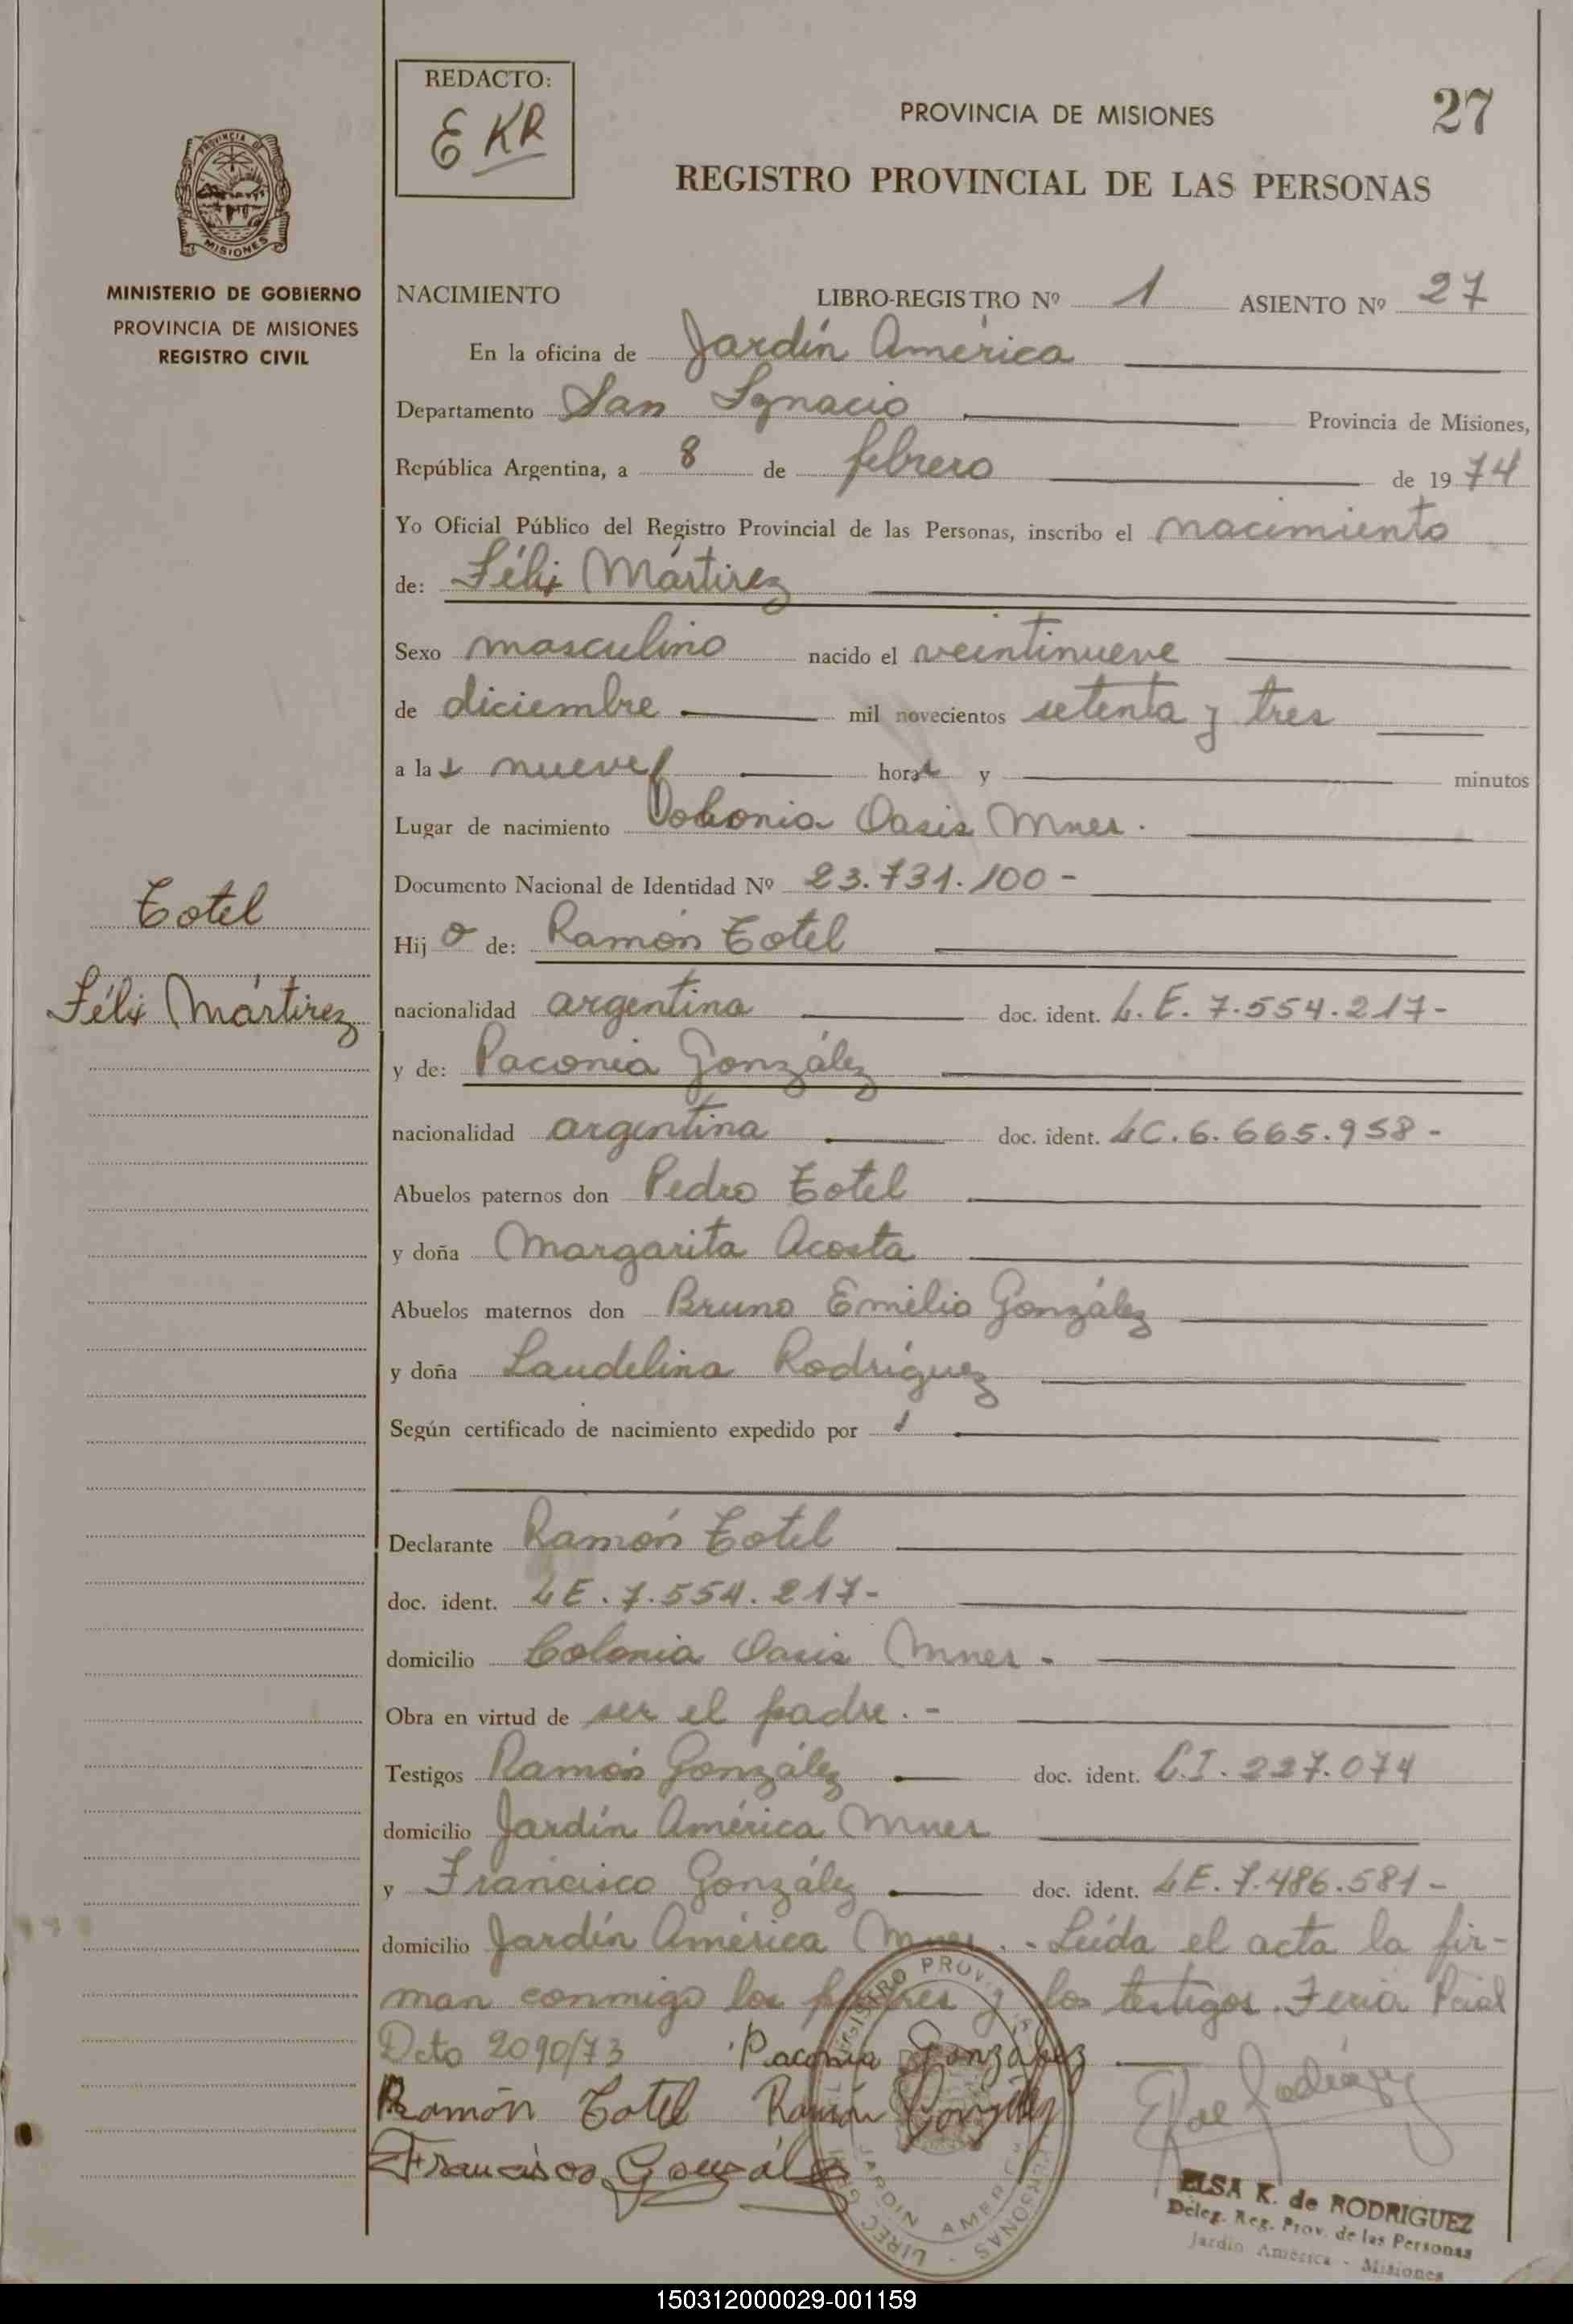 REDACTO:
E KR
PROVINCIA DE MISIONES
27
REGISTRO PROVINCIAL DE LAS PERSONAS
PROVINCIA DE
MISIONES
MINISTERIO DE GOBIERNO
PROVINCIA DE MISIONES
REGISTRO CIVIL
NACIMIENTO LIBRO-REGISTRO Nº 1 ASIENTO Nº 27
En la oficina de Jardín América
Departamento San Ignacio Provincia de Misiones,
República Argentina, a 8 de febrero de 1974
Yo Oficial Público del Registro Provincial de las Personas, inscribo el nacimiento
de: Félix Mártirez
Sexo masculino nacido el veintinueve
de diciembre mil novecientos setenta y tres
a las nueve horas y minutos
Lugar de nacimiento Colonia Oasis Mnes.
Documento Nacional de Identidad Nº 23.731.100-
Totel
Félix Mártirez
Hijo de: Ramón Totel
nacionalidad argentina doc. ident. L.E. 7.554.217-
y de: Paconia González
nacionalidad argentina doc. ident. LC.6.665.958-
Abuelos paternos don Pedro Totel
y doña Margarita Acosta
Abuelos maternos don Bruno Emilio González
y doña Laudelina Rodríguez
Según certificado de nacimiento expedido por
Declarante Ramón Totel
doc. ident. LE.7.554.217-
domicilio Colonia Oasis Mnes-
Obra en virtud de ser el padre.-
Testigos Ramón González doc. ident. C.I. 227.074
domicilio Jardín América Mnes
y Francisco González doc. ident. LE.7.486.581-
domicilio Jardín América Mnes.- Leída el acta la fir-
man conmigo los padres y los testigos. Feria Pcial
Dcto 2090/73 Paconia González
Ramón Totel Ramón González
Francisco González
REGISTRO PROV PERSONAS
JARDIN AMERICA
ELSA K. de RODRIGUEZ
Deleg. Reg. Prov. de las Personas
Jardín América - Misiones
150312000029-001159